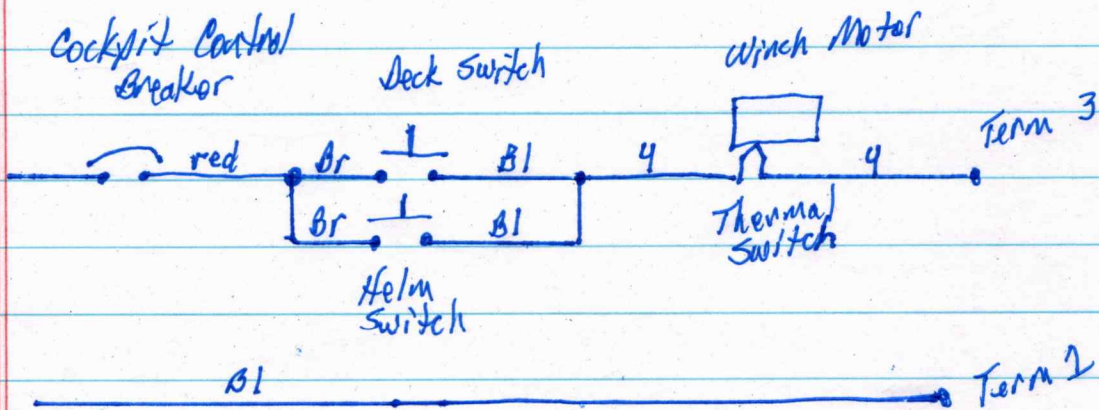 Cockpit Control
Breaker
Deck Switch
Winch Motor
red
Br
Bl
4
4
Term 3
Br
Bl
Thermal
Switch
Helm
Switch
Bl